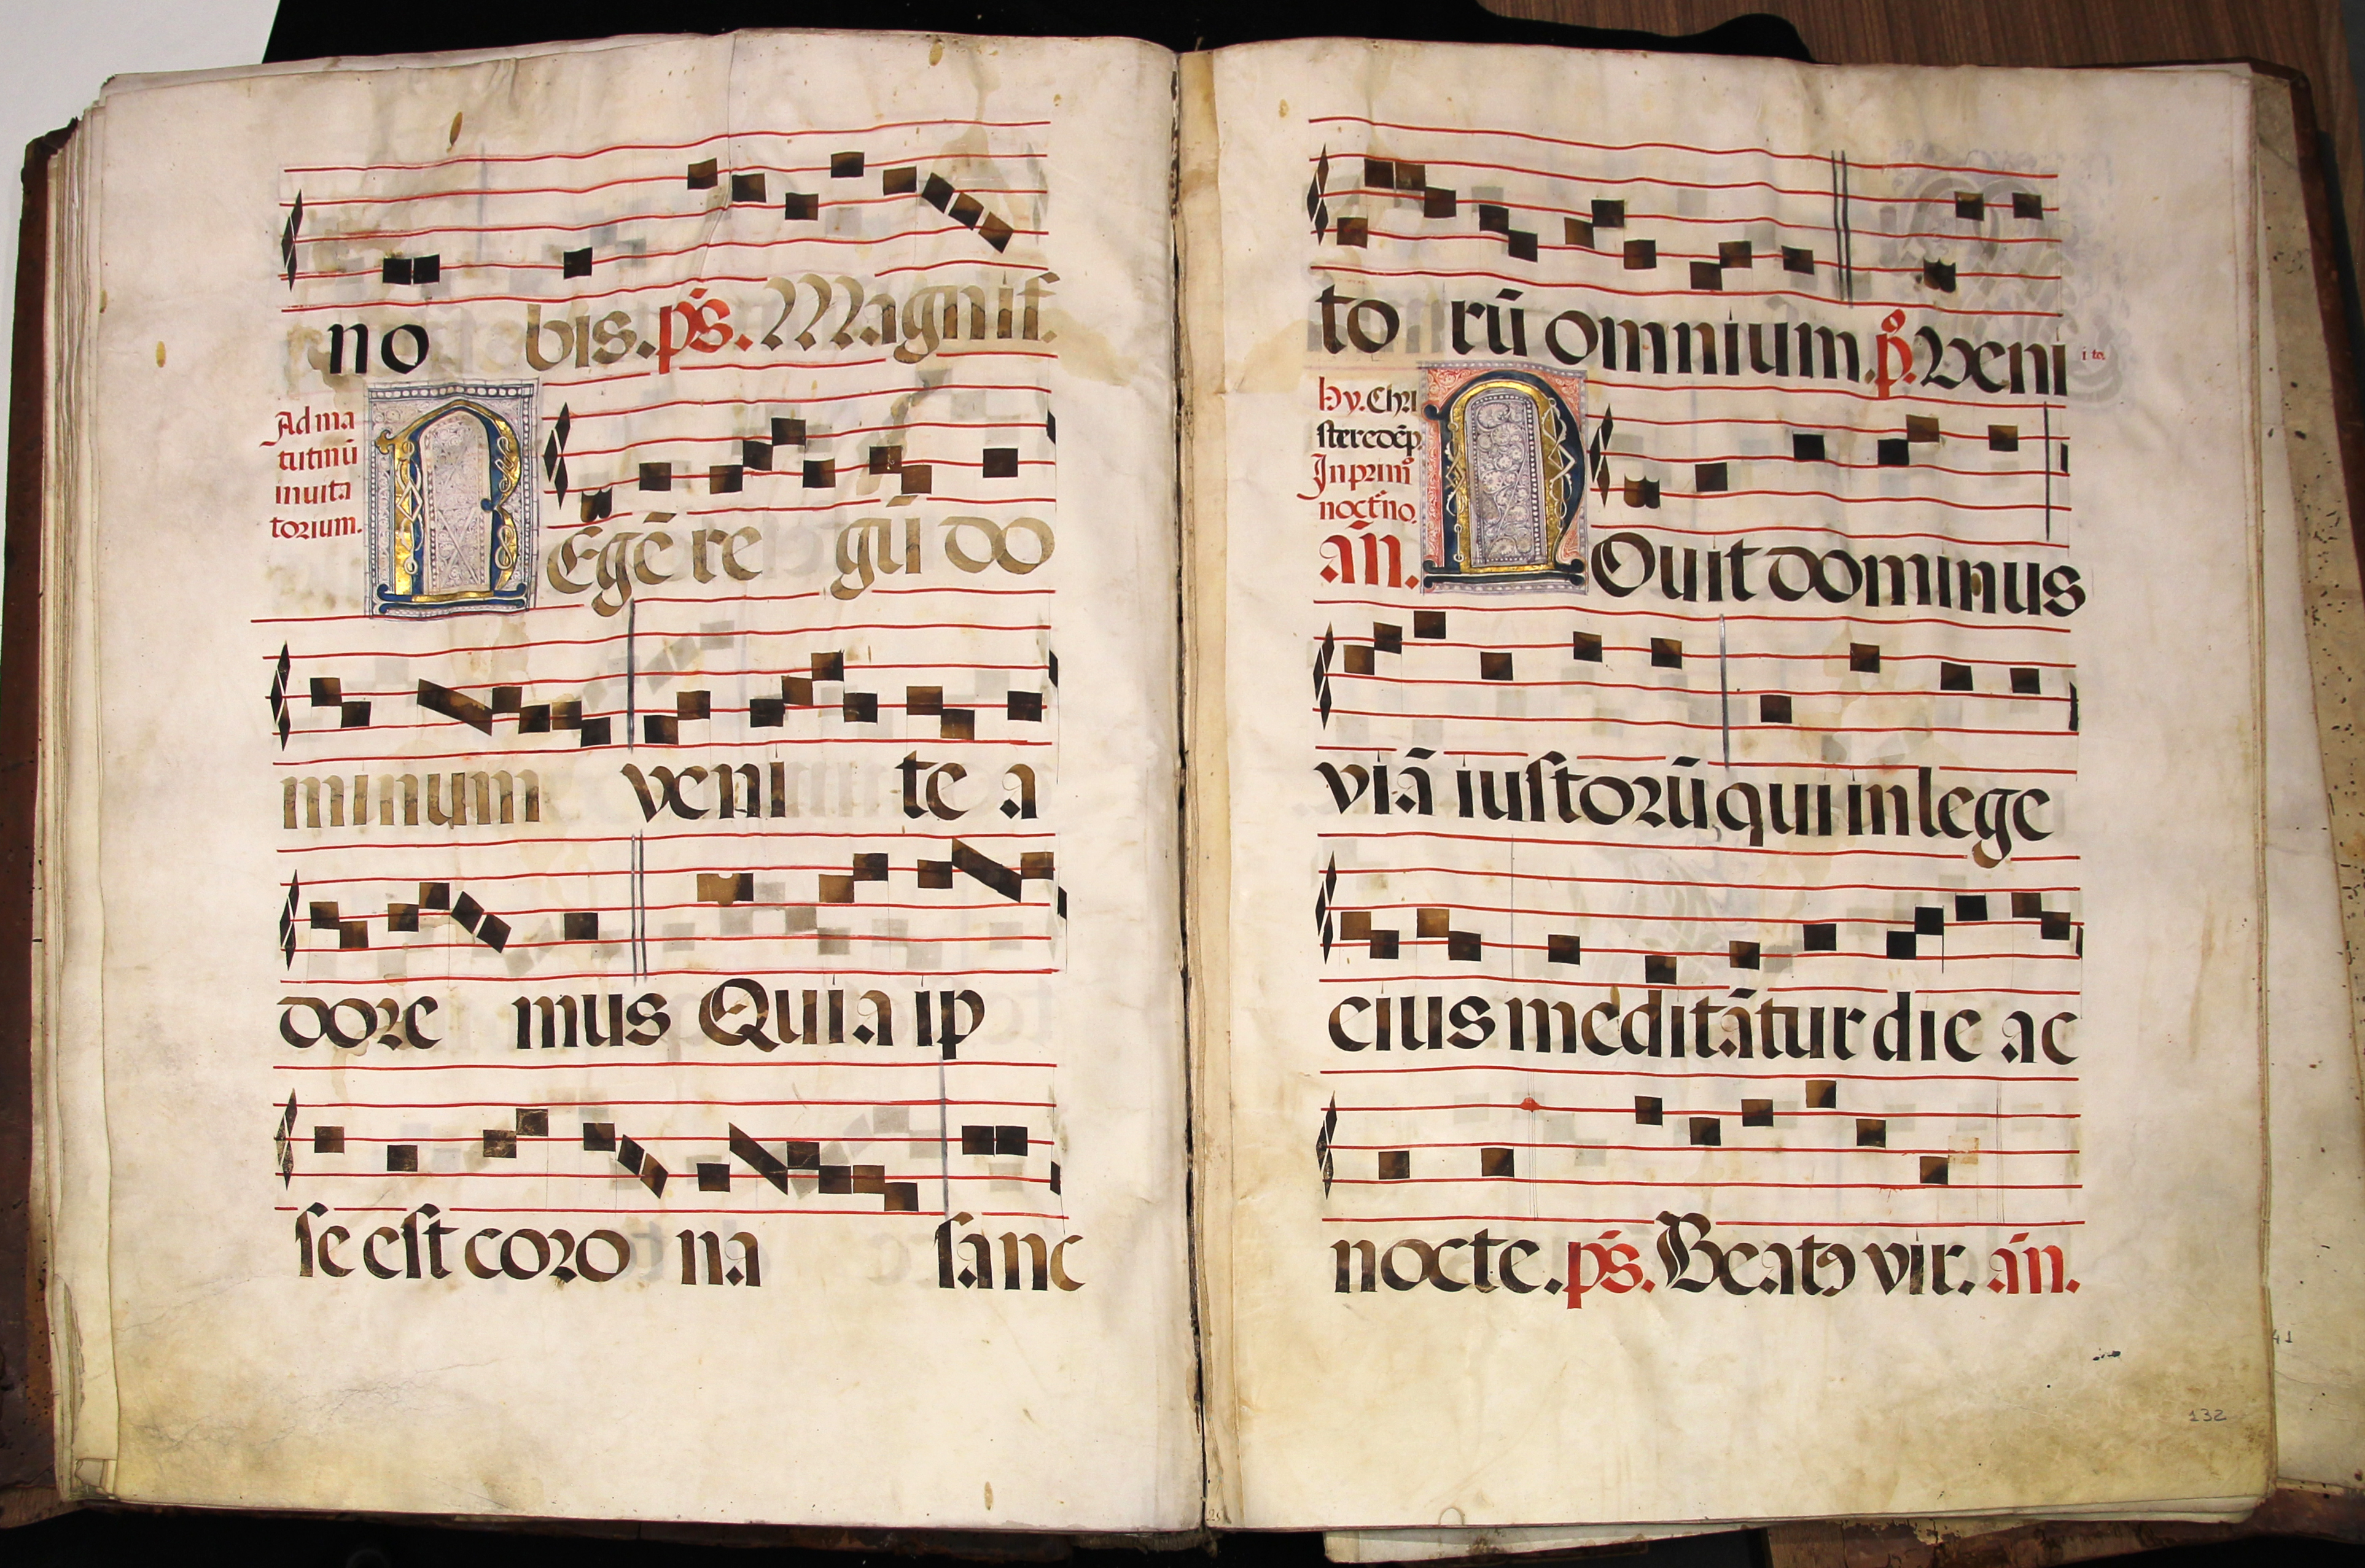 no bis. ps. Magnif.
Ad ma
tutinū
inuita
torium.
REgē re gū do
minum veni te a
dore mus Quia ip
se est coro na sanc
to rū omnium. p̊. Veni
ito.
hy. Chri
ste redēp.
In primo
noctno.
añ.
NOuit dominus
viā iustorū qui in lege
eius meditātur die ac
nocte. ps. Beatꝯ vir. añ.
41
132